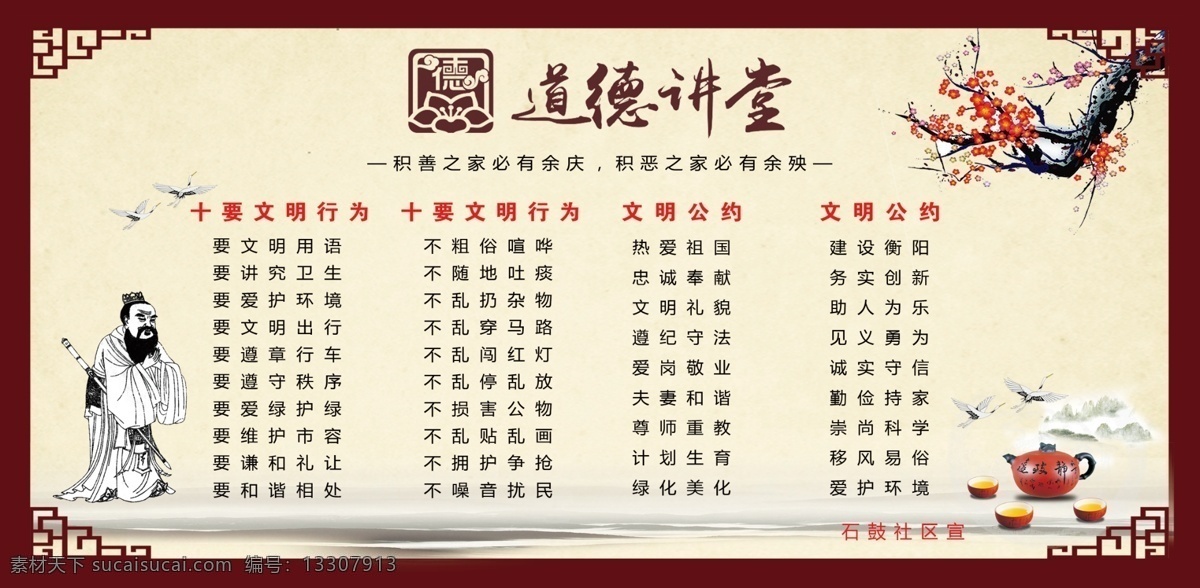 德
道德讲堂
—积善之家必有余庆，积恶之家必有余殃—
十要文明行为
要文明用语
要讲究卫生
要爱护环境
要文明出行
要遵章行车
要遵守秩序
要爱绿护绿
要维护市容
要谦和礼让
要和谐相处
十要文明行为
不粗俗喧哗
不随地吐痰
不乱扔杂物
不乱穿马路
不乱闯红灯
不乱停乱放
不损害公物
不乱贴乱画
不拥护争抢
不噪音扰民
文明公约
热爱祖国
忠诚奉献
文明礼貌
遵纪守法
爱岗敬业
夫妻和谐
尊师重教
计划生育
绿化美化
文明公约
建设衡阳
务实创新
助人为乐
见义勇为
诚实守信
勤俭持家
崇尚科学
移风易俗
爱护环境
石鼓社区宣
素材天下 sucaisucai.com 编号：13307913